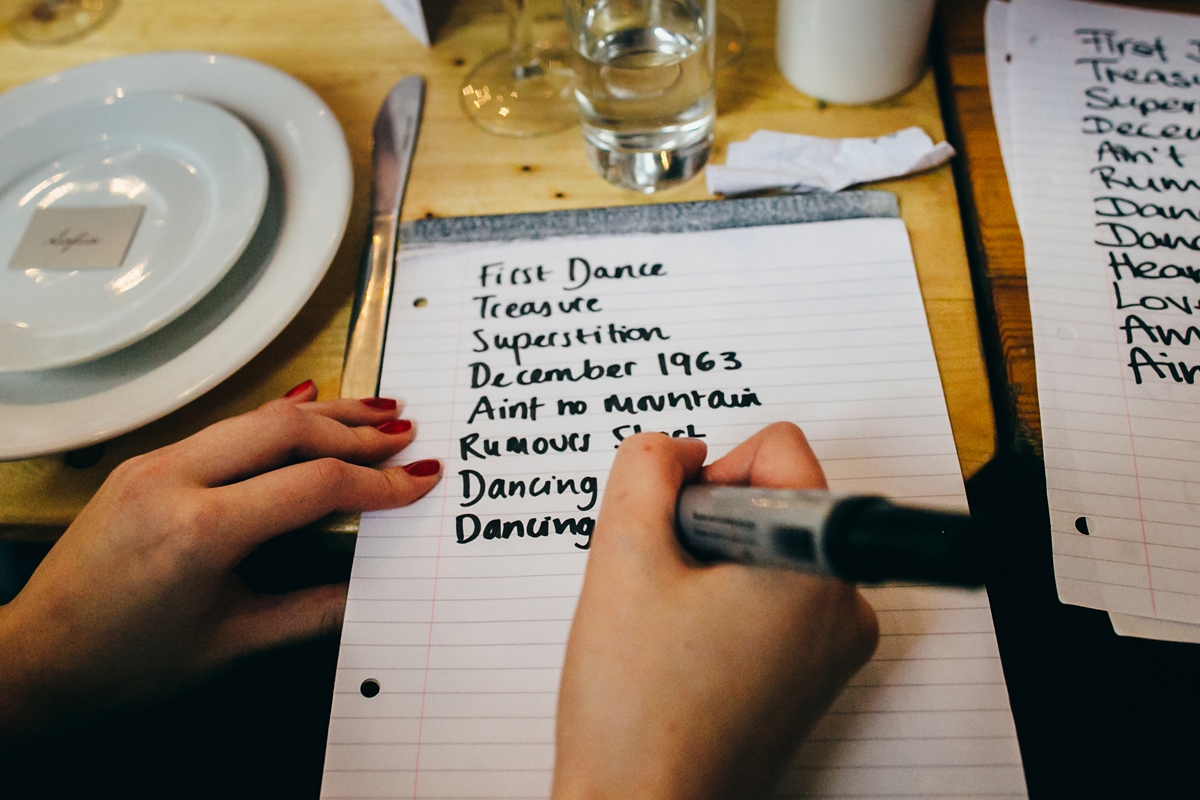 First Dance
Treasure
Superstition
December 1963
Aint no mountain
Rumours
Dancing
Dancing
First
Treas
Super
Dece
Ain't
Rum
Dan
Danc
Hear
Lov
Am
Ain